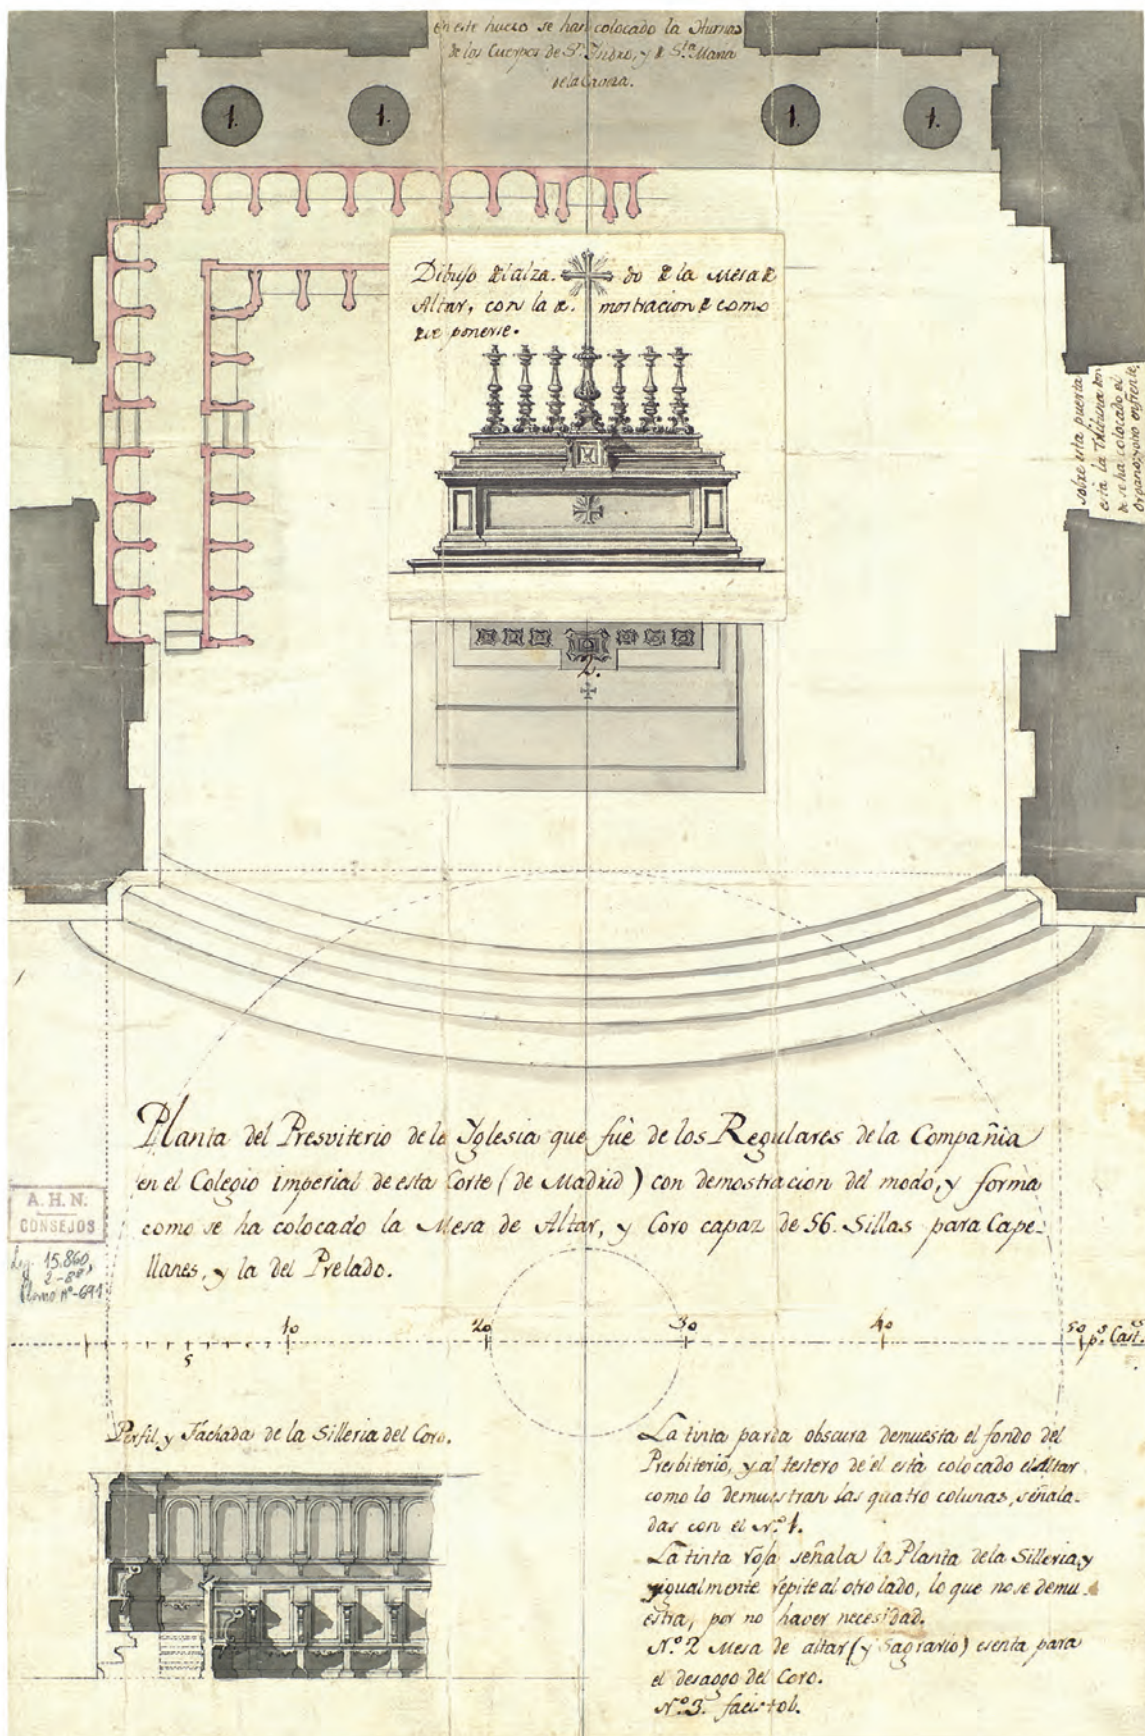 en este hueco se han colocado la Hurnas
de los Cuerpos de Sn. Isidro, y de Sta. Maria
de la Caveza.
1.
1.
1.
1.
Dibujo del alza. do de la Mesa de
Altar, con la de. mostracion de como
deve ponerse.
sobre esta puerta
está la Tribuna don
de se ha colocado el
organo, y otro enfrente
2.
Planta del Presviterio de la Yglesia que fuè de los Regulares de la Compañia
en el Colegio imperial de esta Corte (de Madrid) con demostracion del modo, y forma
como se ha colocado la Mesa de Altar, y Coro capaz de 56. Sillas para Cape-
llanes, y la del Prelado.
A.H.N.
CONSEJOS
Leg. 15.860,
2-8º
Plano nº-691
5
10
20
30
40
50 ps. Casts.
Perfil, y Fachada de la Silleria del Coro.
La tinta parda obscura demuesta el fondo del
Presbiterio, y al testero de él està colocado el Altar
como lo demuestran las quatro colunas, señala-
das con el Nº. 1.
La tinta roja señala la Planta de la Silleria, y
ygualmente repite al otro lado, lo que no se demu-
estra, por no haver necesidad.
Nº. 2 Mesa de altar (y Sagrario) esenta para
el desaogo del Coro.
Nº. 3. facistol.